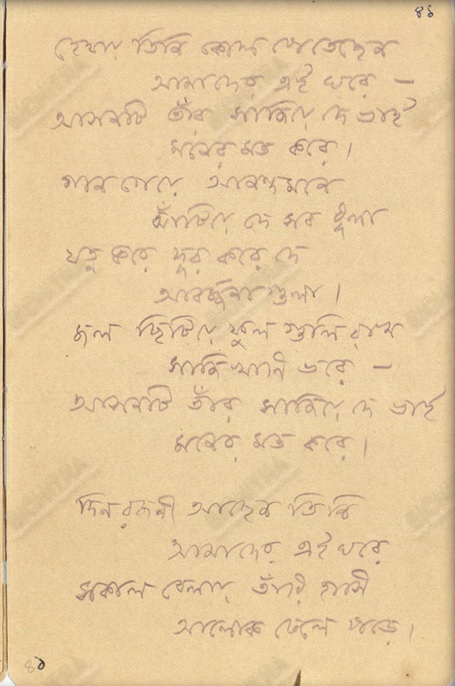 ৪১
হেথায় তিনি কোল পেতেছেন
আমাদের এই ঘরে —
আসনটি তাঁর সাজিয়ে দে ভাই
মনের মত করে।
গান গেয়ে আনন্দমনে
ঝাঁটিয়ে দে সব ধূলা
যত্ন করে দূর করে দে
আবর্জ্জনাগুলা।
জল ছিটিয়ে ফুলগুলি রাখ
সাজিখানি ভরে —
আসনটি তাঁর সাজিয়ে দে ভাই
মনের মত করে।
দিনরজনী আছেন তিনি
আমাদের এই ঘরে
সকাল বেলায় তাঁরি হাসি
আলোক ঢেলে পড়ে।
৪১